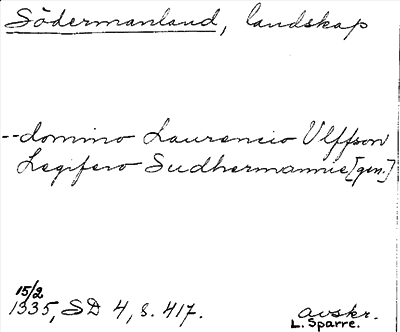 Södermanland, landskap
--domino Laurencio Ulffson
Legifero Sudhermannie [gen.]
15/2
1335, SD 4, s. 417.
avskr.
L. Sparre.